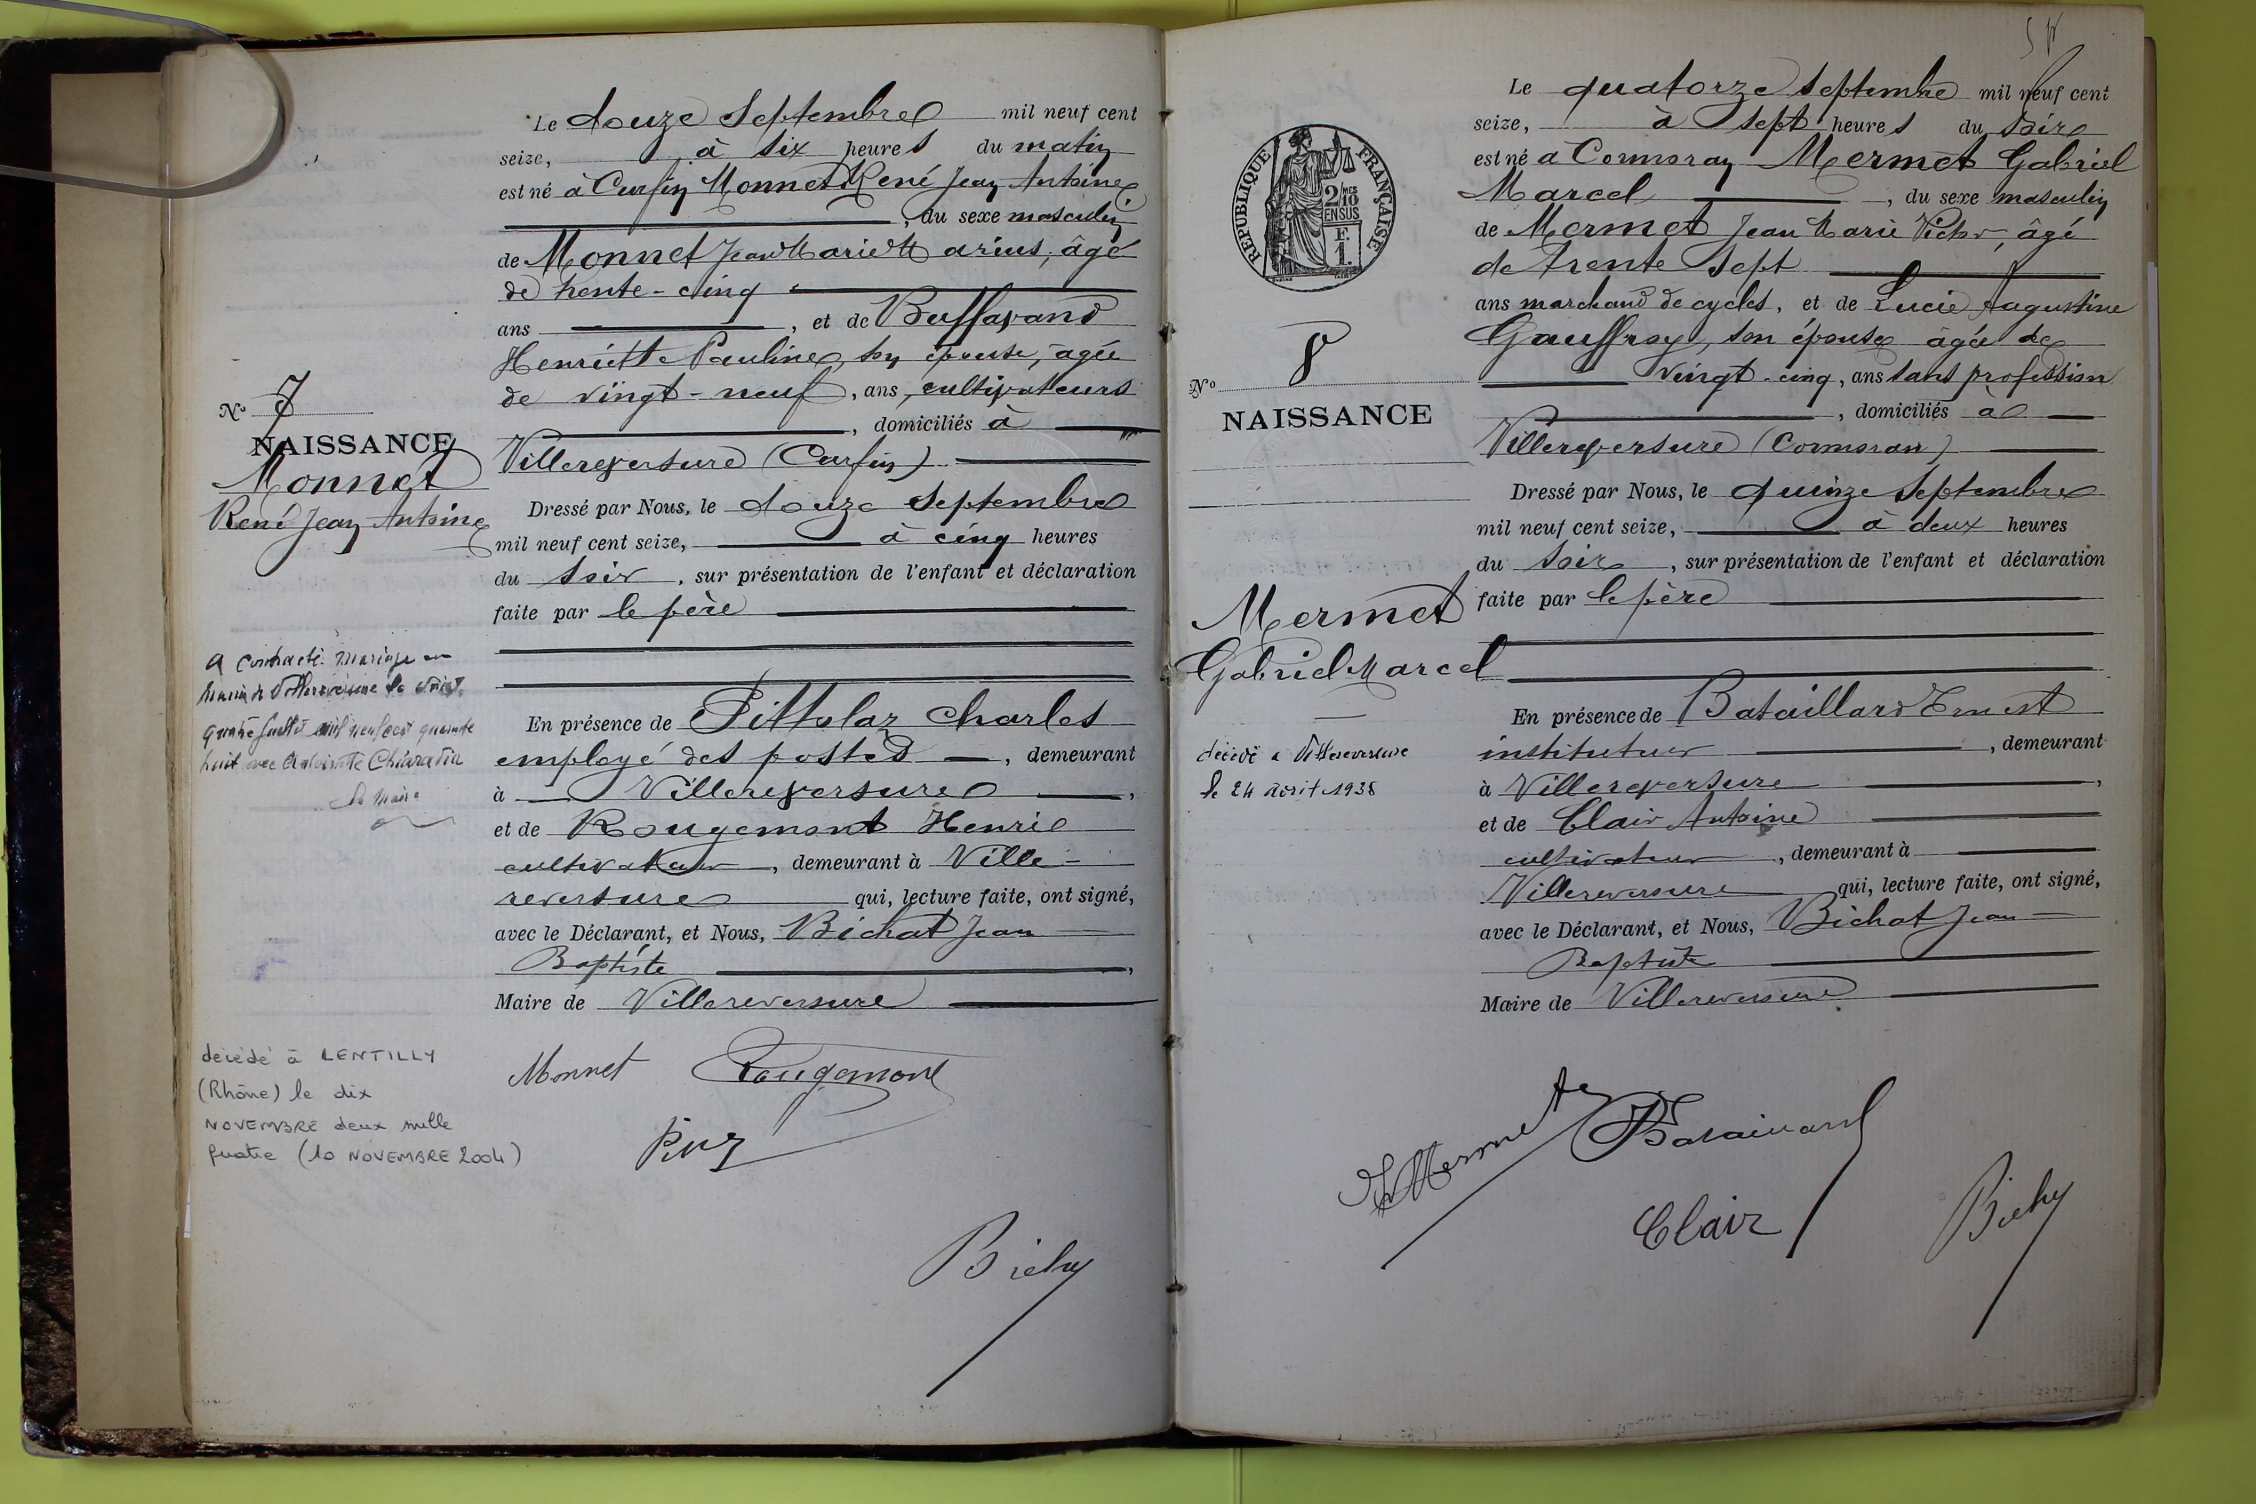 Le douze Septembre mil neuf cent
seize, à six heures du matin
est né à Curfin Monnet René Jean Antoine
, du sexe masculin
de Monnet Jean Marie Marius, âgé
de trente-cinq
ans , et de Buffavand
Henriette Pauline, son épouse, âgée
de vingt-neuf, ans, cultivateurs
, domiciliés à
Villereversure (Curfin)
Dressé par Nous, le douze Septembre
mil neuf cent seize, à cinq heures
du soir, sur présentation de l'enfant et déclaration
faite par le père
En présence de Charles
employé des postes , demeurant
à Villereversure ,
et de Rougemont Henri
cultivateur , demeurant à Ville-
reversure qui, lecture faite, ont signé,
avec le Déclarant, et Nous, Bichat Jean
Baptiste ,
Maire de Villereversure
Monnet Rougemont
N° 7
NAISSANCE
Monnet
René Jean Antoine
A contracté mariage en
mairie de Villereversure le vingt
quatre juillet mil neuf cent quarante
huit avec Antoinette
Le Maire
décédé à LENTILLY
(Rhône) le dix
NOVEMBRE deux mille
quatre (10 NOVEMBRE 2004)
RÉPUBLIQUE FRANÇAISE
2/10 MES
EN SUS
F.
1.
N° 8
NAISSANCE
Mermet
Gabriel Marcel
décédé à Villereversure
le 24 août 1938
Le quatorze Septembre mil neuf cent
seize, à sept heures du soir
est né à Cormoran Mermet Gabriel
Marcel , du sexe masculin
de Mermet Jean Marie Victor, âgé
de trente sept
ans marchand de cycles, et de Lucie Augustine
Gauffroy, son épouse âgée de
vingt-cinq, ans sans profession
, domiciliés à
Villereversure (Cormoran)
Dressé par Nous, le quinze Septembre
mil neuf cent seize, à deux heures
du soir , sur présentation de l'enfant et déclaration
faite par le père
En présence de Bataillard Ernest
instituteur , demeurant
à Villereversure ,
et de Clair Antoine
cultivateur , demeurant à
Villereversure qui, lecture faite, ont signé,
avec le Déclarant, et Nous, Bichat Jean
Baptiste
Maire de Villereversure
Mermet Bataillard
Clair